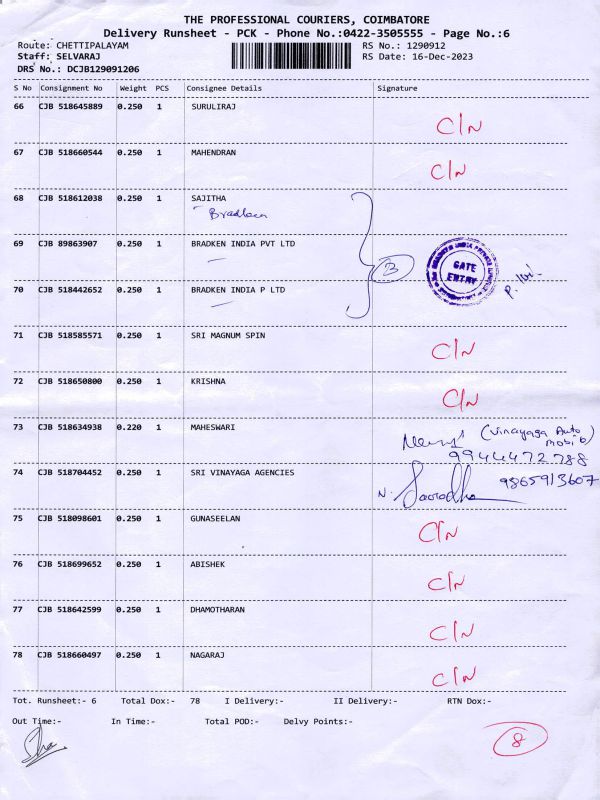 THE PROFESSIONAL COURIERS, COIMBATORE
Delivery Runsheet - PCK - Phone No.:0422-3505555 - Page No.:6
Route: CHETTIPALAYAM RS No.: 1290912
Staff: SELVARAJ RS Date: 16-Dec-2023
DRS No.: DCJB129091206
S No Consignment No Weight PCS Consignee Details Signature
66 CJB 518645889 0.250 1 SURULIRAJ C/N
67 CJB 518660544 0.250 1 MAHENDRAN C/N
68 CJB 518612038 0.250 1 SAJITHA
Bradken
69 CJB 89863907 0.250 1 BRADKEN INDIA PVT LTD
3 GATE ENTRY
70 CJB 518442652 0.250 1 BRADKEN INDIA P LTD
71 CJB 518585571 0.250 1 SRI MAGNUM SPIN C/N
72 CJB 518650800 0.250 1 KRISHNA C/N
73 CJB 518634938 0.220 1 MAHESWARI (Vinayaga Auto
mobib)
9944472788
74 CJB 518704452 0.250 1 SRI VINAYAGA AGENCIES 9865913607
N.
75 CJB 518098601 0.250 1 GUNASEELAN C/N
76 CJB 518699652 0.250 1 ABISHEK C/N
77 CJB 518642599 0.250 1 DHAMOTHARAN C/N
78 CJB 518660497 0.250 1 NAGARAJ C/N
Tot. Runsheet:- 6 Total Dox:- 78 I Delivery:- II Delivery:- RTN Dox:-
Out Time:- In Time:- Total POD:- Delvy Points:-
8